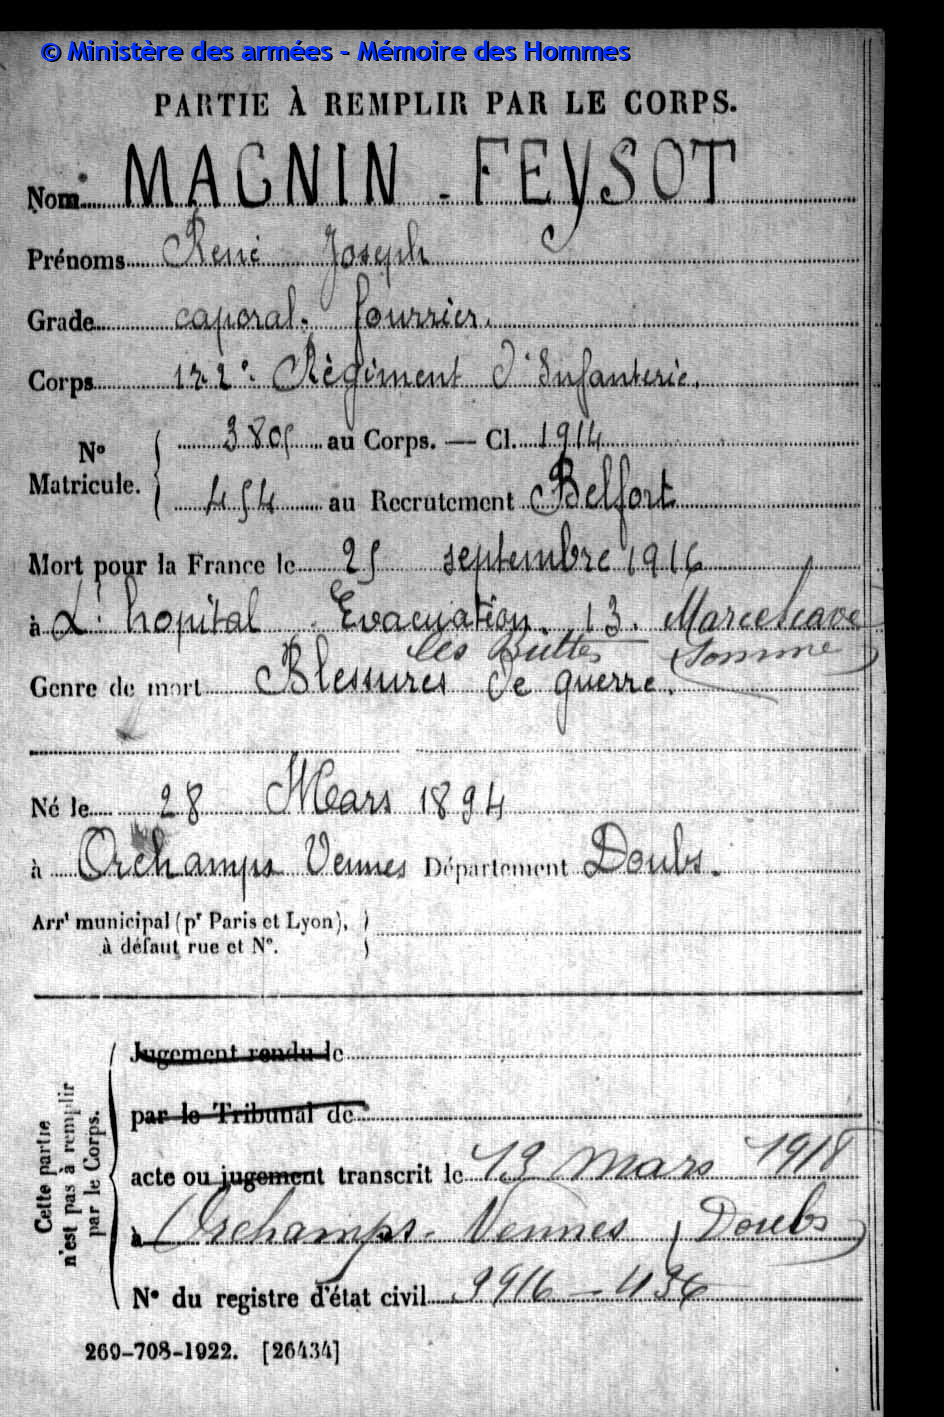 © Ministère des armées - Mémoire des Hommes
PARTIE À REMPLIR PAR LE CORPS.
Nom MAGNIN - FEYSOT
Prénoms René Joseph
Grade caporal-fourrier.
Corps 122e Régiment d'Infanterie.
N° Matricule. 3805 au Corps. — Cl. 1914
454 au Recrutement Belfort
Mort pour la France le 25 septembre 1916
à L'hopital Evacuation 13. Marcelcave
les Buttes (Somme)
Genre de mort Blessures de guerre.
Né le 28 Mars 1894
à Orchamps Vennes Département Doubs.
Arrt municipal (pr Paris et Lyon),
à défaut rue et N°.
Cette partie
n'est pas à remplir
par le Corps.
Jugement rendu le
par le Tribunal de
acte ou jugement transcrit le 13 mars 1918
à Orchamps-Vennes (Doubs)
N° du registre d'état civil
260-708-1922. [26434]